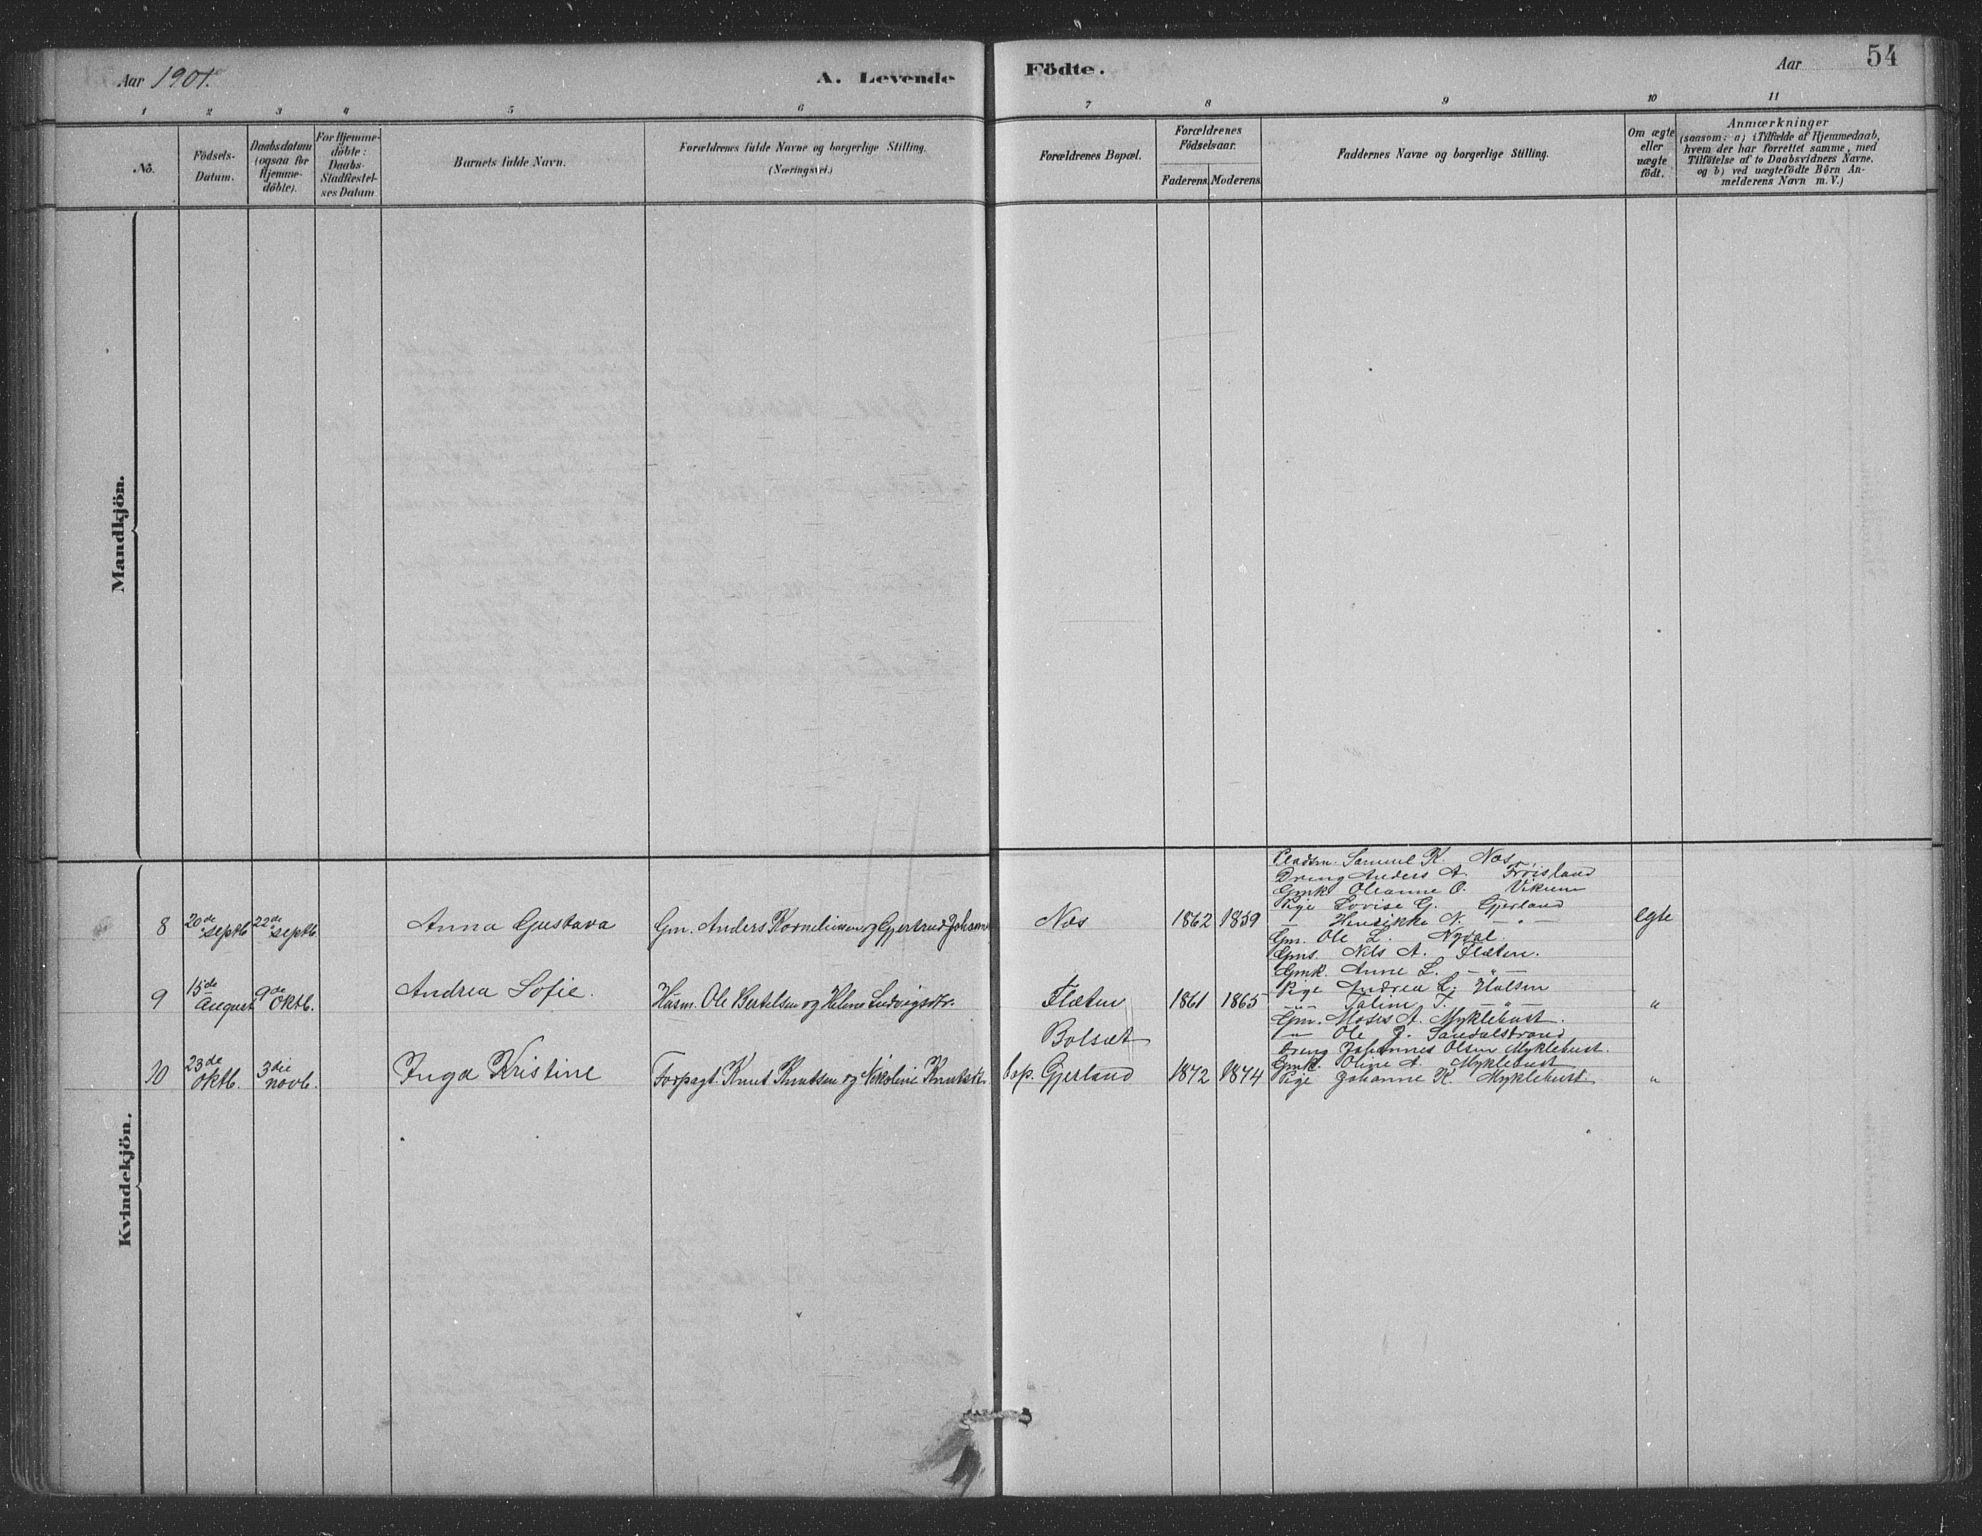 Aar 1901.
A. Levende
Födte.
Aar
54
1
2
3
4
5
6
7
8
9
10
11
No.
Födsels-
Datum.
Daabsdatum
(ogsaa for
Hjemme-
döbte).
For Hjemme-
döbte:
Daabs-
Stadfæstel-
ses Datum
Barnets fulde Navn.
Forældrenes fulde Navne og borgerlige Stilling.
(Næringsvei.)
Forældrenes Bopæl.
Forældrenes
Födselsaar.
Faderens.
Moderens.
Faddernes Navne og borgerlige Stilling.
Om ægte
eller
uægte
födt.
Anmærkninger
(saasom: a) i Tilfælde af Hjemmedaab,
hvem der har forrettet samme, med
Tilföielse af to Daabsvidners Navne,
og b) ved uægtefödte Börn An-
melderens Navn m. V.)
Mandkjön.
Kvindekjön.
8
20de
septb.
22de
septb.
Anna Gustava
Gm. Anders Korneliussen og Gjertrud Johanne
Nos
1862
1859
Pladsm. Samuel K. Nos
Dreng Anders A. Frøisland
Gmk. Oleanne O. Vikum
Pige Lovise G. Gjerland
— Henrikke N. — " —
egte
Gm. Ole L. Nydal
9
15de
August
9de
Oktb.
Andrea Sofie.
Husm. Ole Bertelsen og Helene Ludvigsdtr.
Flæten
1861
1865
Gms. Nils A. Flæten.
Gmk. Anne L. — " —
Pige Andrea L. Halsen
— " — Taline T. — " —
"
10
23de
Oktb.
3die
novb.
Inga Kristine
Forpagt. Knut Knutsen og Nikoline Knutsdtr.
Bolsæt
bop. Gjerland
1872
1874
Gm. Moses A. Myklebust.
— " — Ole J. Sandalstrand
Dreng Johannes Olsen Myklebust.
Gmk. Oline A. Myklebust
Pige Johanne K. Myklebust
"